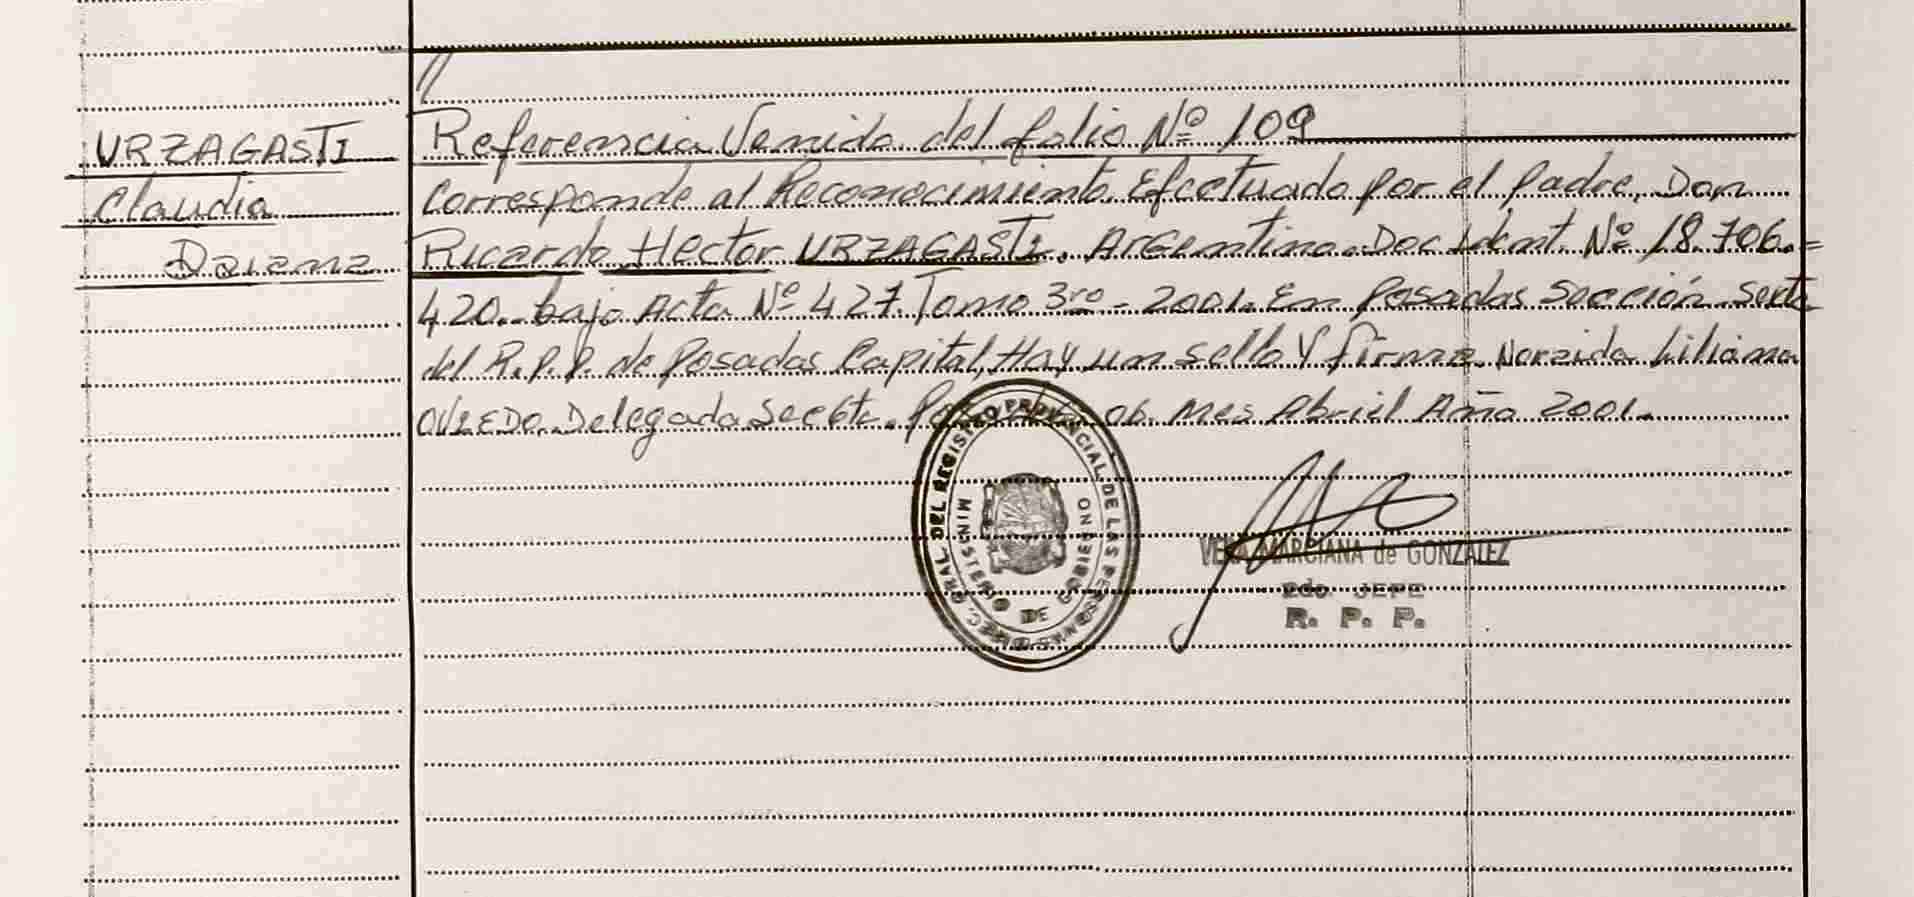 //
URZAGASTI
Claudia
Daiana
Referencia Venida del folio Nº 109
Corresponde al Reconocimiento Efectuado por el padre, Don
Ricardo Hector URZAGASTI. Argentino. Doc Ident. Nº 18.706.=
420. bajo Acta Nº 427. Tomo 3ro - 2001. En Posadas Sección Sexta
del R.P.P. de Posadas Capital, Hay un sello Y firma Liliana
OVIEDO. Delegada Sec 6ta. 06. Mes Abril Año 2001.
DIREC. GRAL DEL REGISTRO PROVINCIAL DE LAS PERSONAS
MINISTERIO DE GOBIERNO
VERA MARCIANA de GONZALEZ
2do. JEFE
R. P. P.